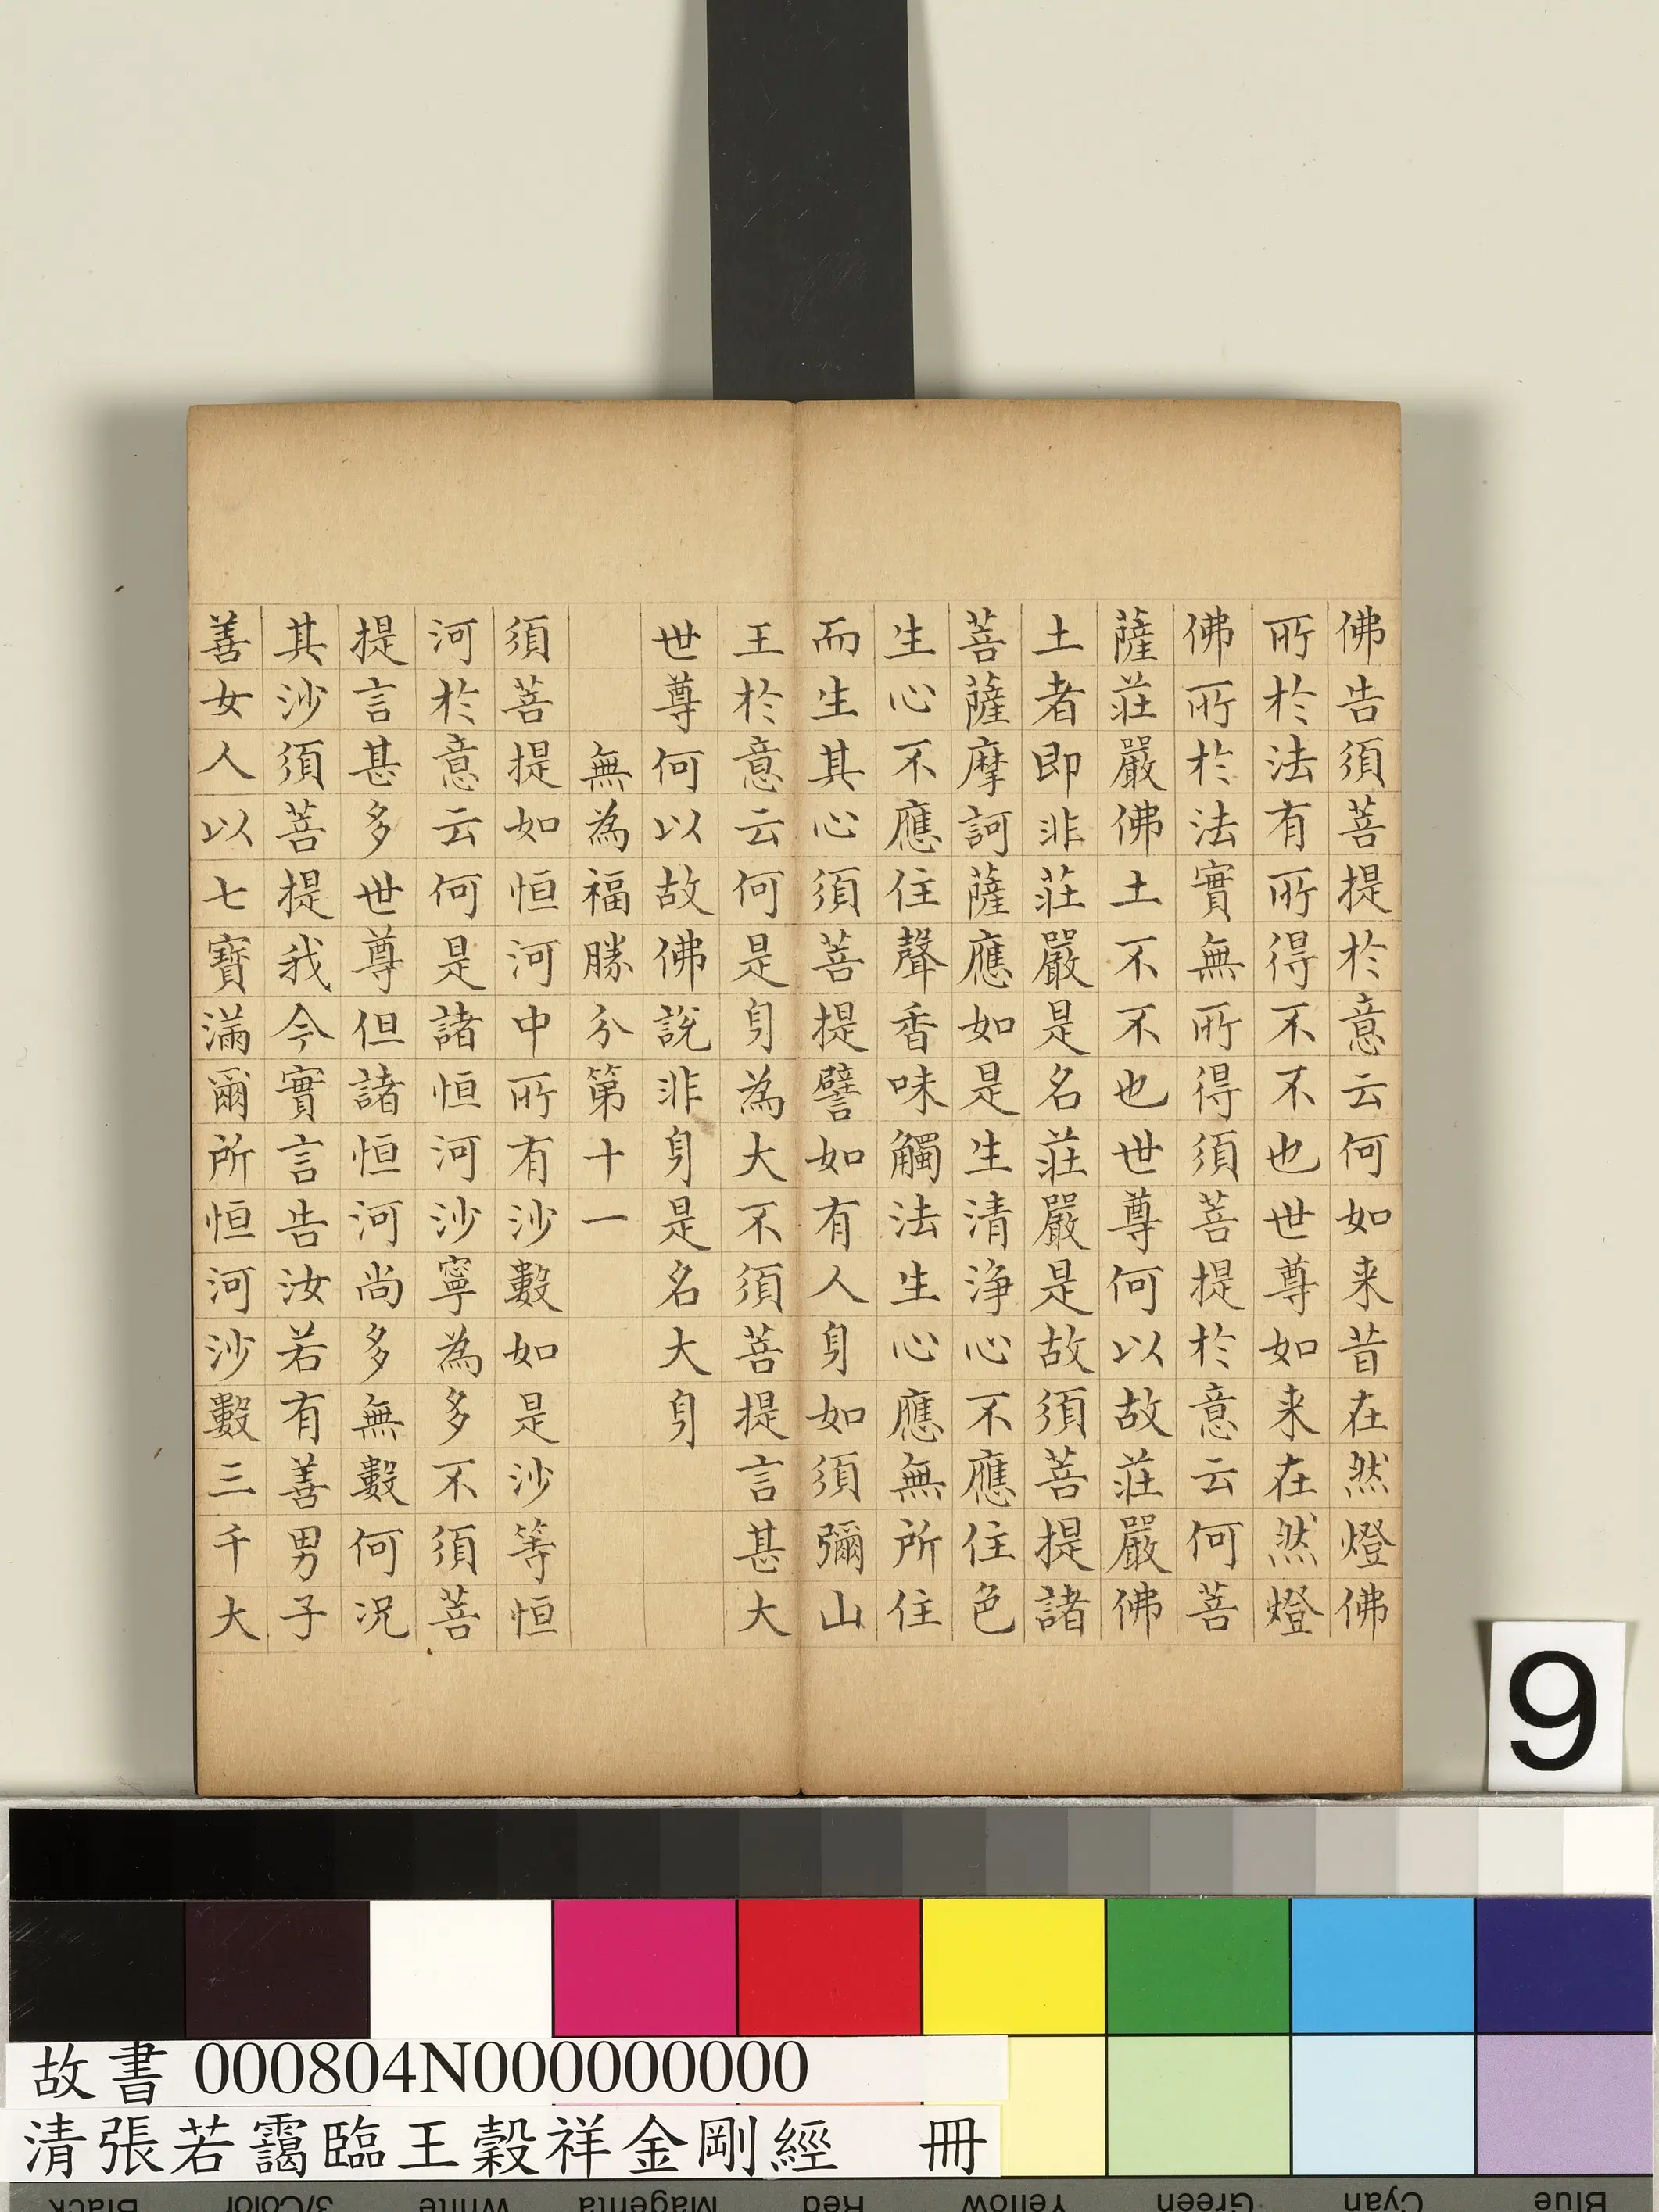 佛告須菩提於意云何如来昔在然燈佛
所於法有所得不不也世尊如来在然燈
佛所於法實無所得須菩提於意云何菩
薩莊嚴佛土不不也世尊何以故莊嚴佛
土者即非莊嚴是名莊嚴是故須菩提諸
菩薩摩訶薩應如是生清浄心不應住色
生心不應住聲香味觸法生心應無所住
而生其心須菩提譬如有人身如須彌山
王於意云何是身為大不須菩提言甚大
世尊何以故佛說非身是名大身
無為福勝分第十一
須菩提如恒河中所有沙數如是沙等恒
河於意云何是諸恒河沙寧為多不須菩
提言甚多世尊但諸恒河尚多無數何况
其沙須菩提我今實言告汝若有善男子
善女人以七寶滿爾所恒河沙數三千大
9
故書 000804N000000000
清張若靄臨王穀祥金剛經 冊
Black 3/Color White Magenta Red Yellow Green Cyan Blue